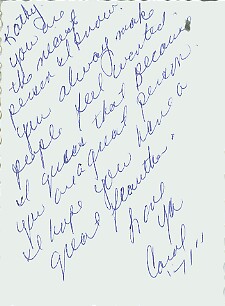 Kathy
you are
the nicest
person I know.
You always make
people feel wanted.
I guess that because
you are a great person.
I hope you have a
great
love ya
Carol
'71"